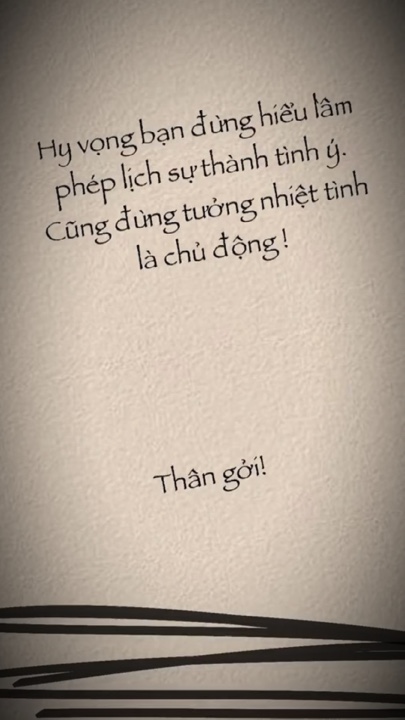 Hy vọng bạn đừng hiểu lầm
phép lịch sự thành tình ý.
Cũng đừng tưởng nhiệt tình
là chủ động!
Thân gởi!